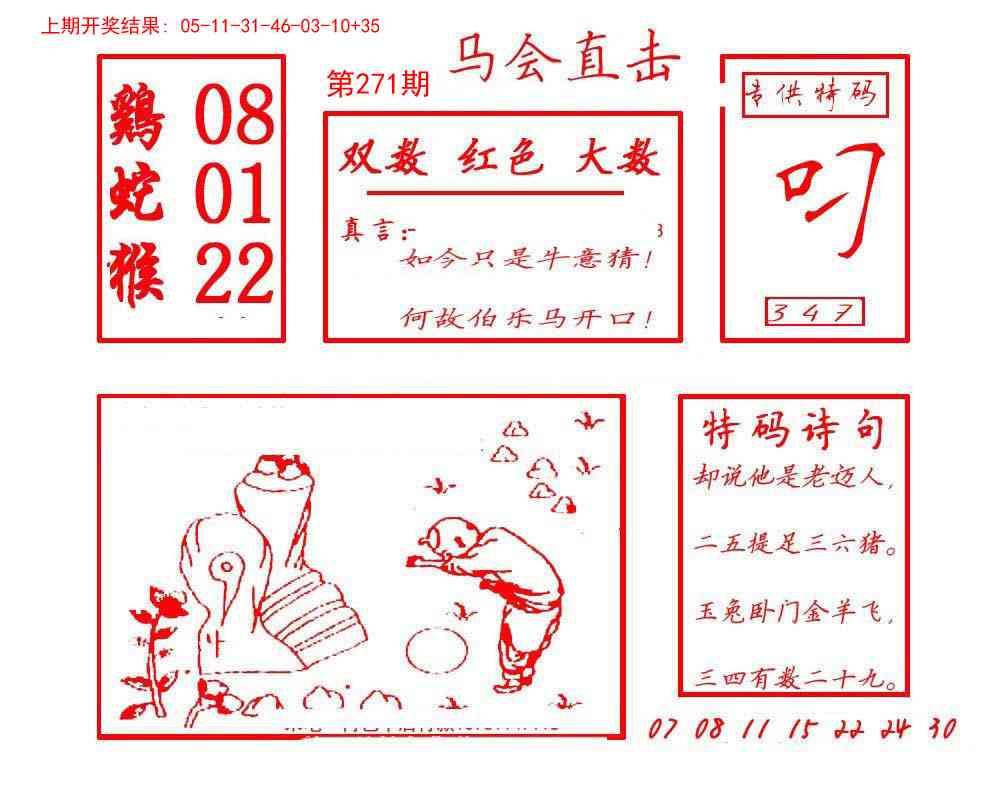 上期开奖结果: 05-11-31-46-03-10+35
马会直击
第271期
鷄 08
蛇 01
猴 22
双数 红色 大数
真言:
如今只是牛意猜!
何故伯乐马开口!
专供特码
叼
3 4 7
特码诗句
却说他是老迈人,
二五提足三六猪。
玉兔卧门金羊飞,
三四有数二十九。
07 08 11 15 22 24 30